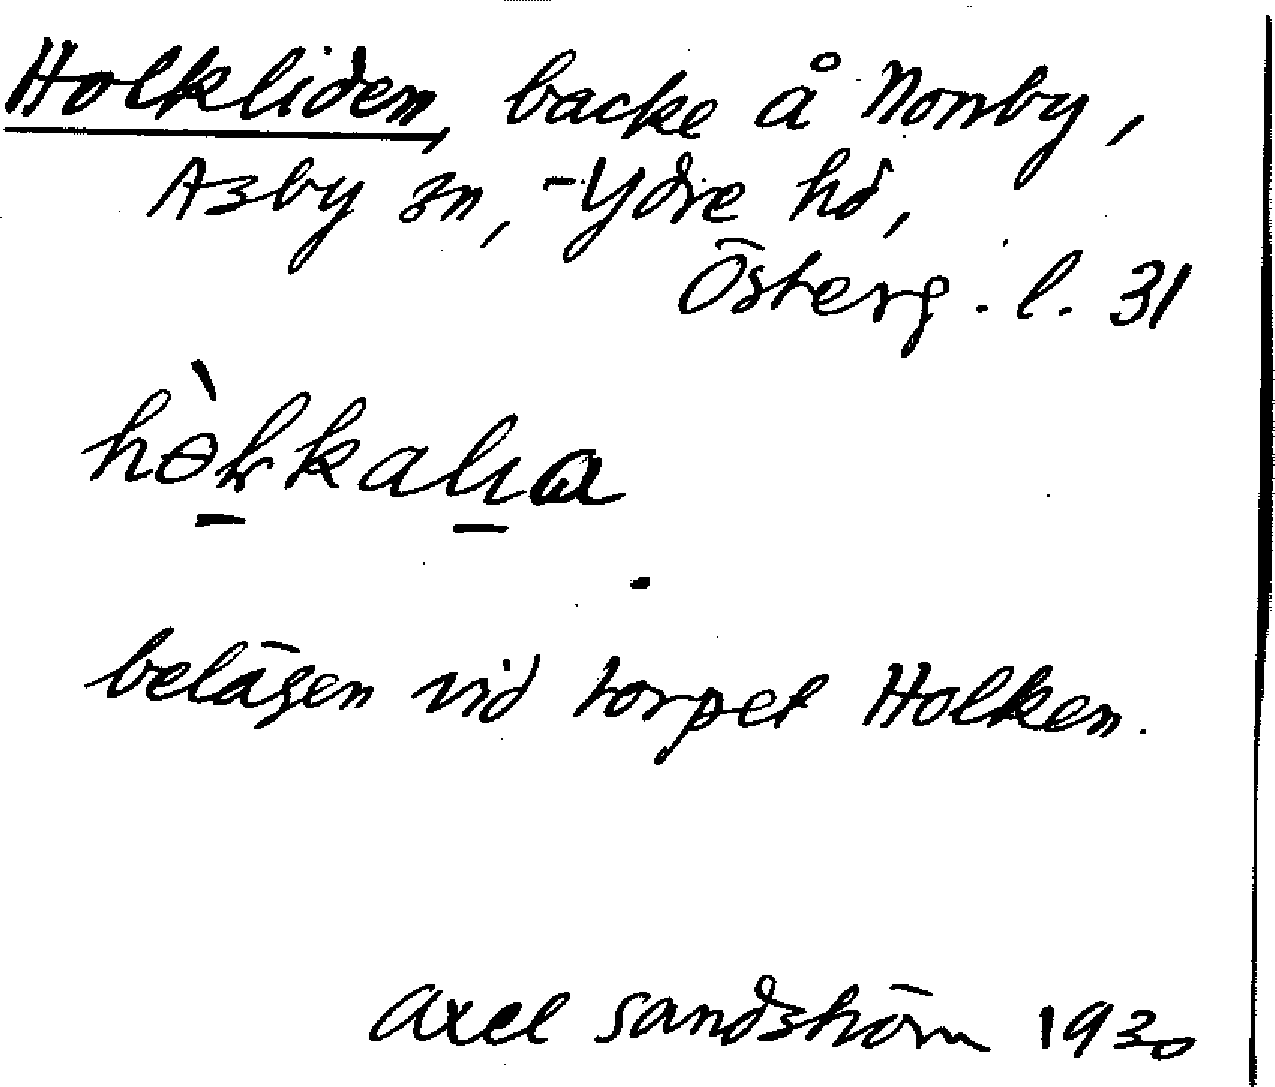 Holkliden, backe å Norrby,
Asby sn, Ydre hd,
Österg. l. 31
belägen vid torpet Holken.
Axel Sandström 1930